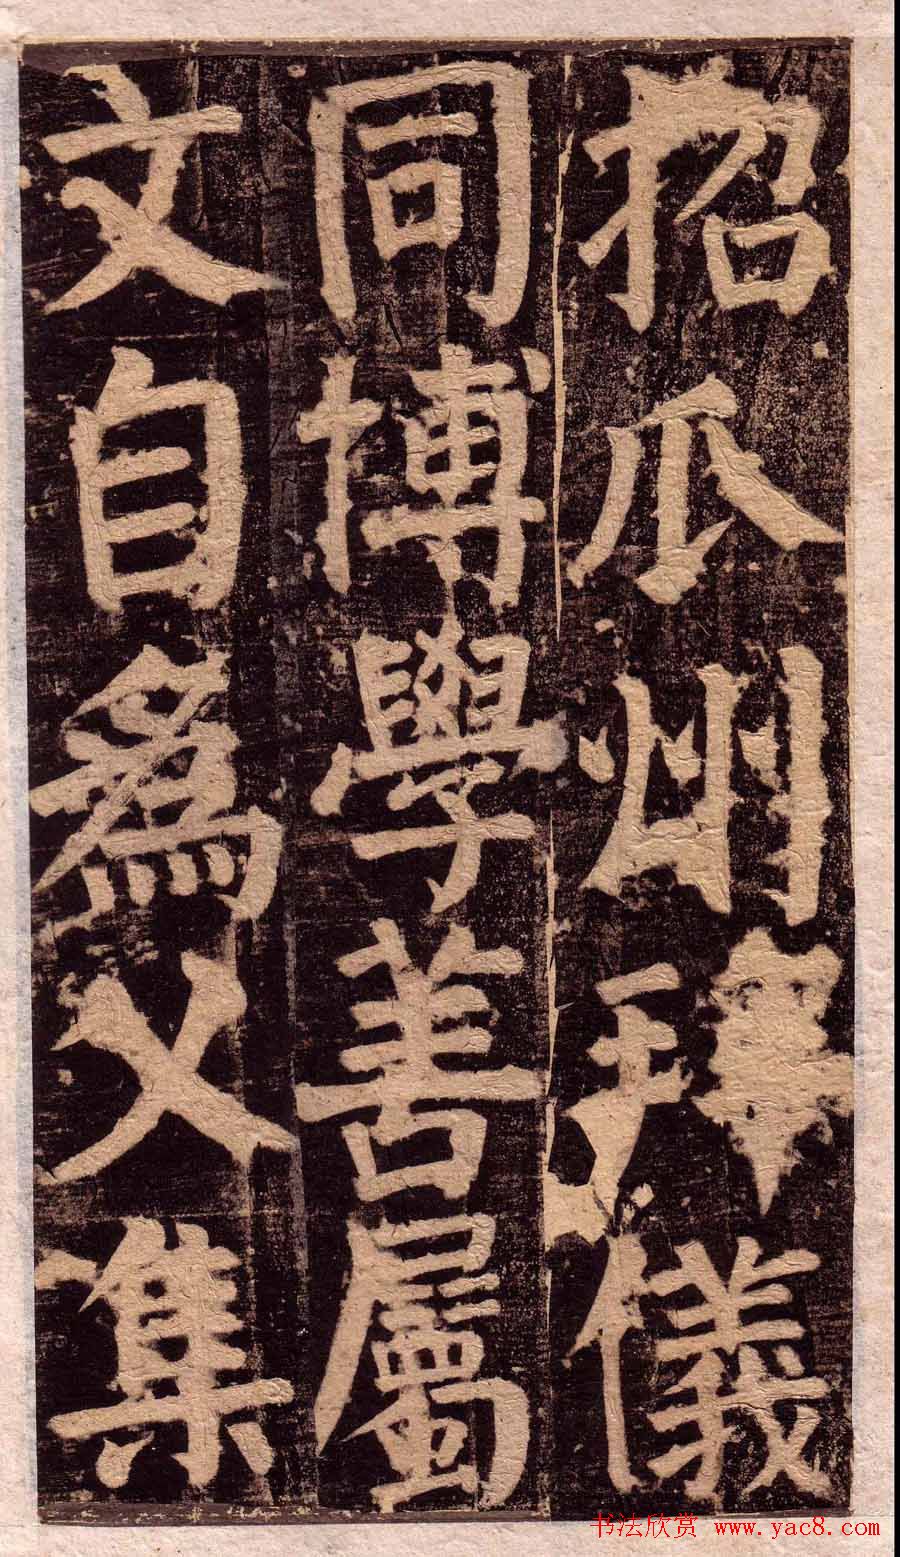 招瓜州拜儀
同博學善屬
文自爲文集
书法欣赏 www.yac8.com